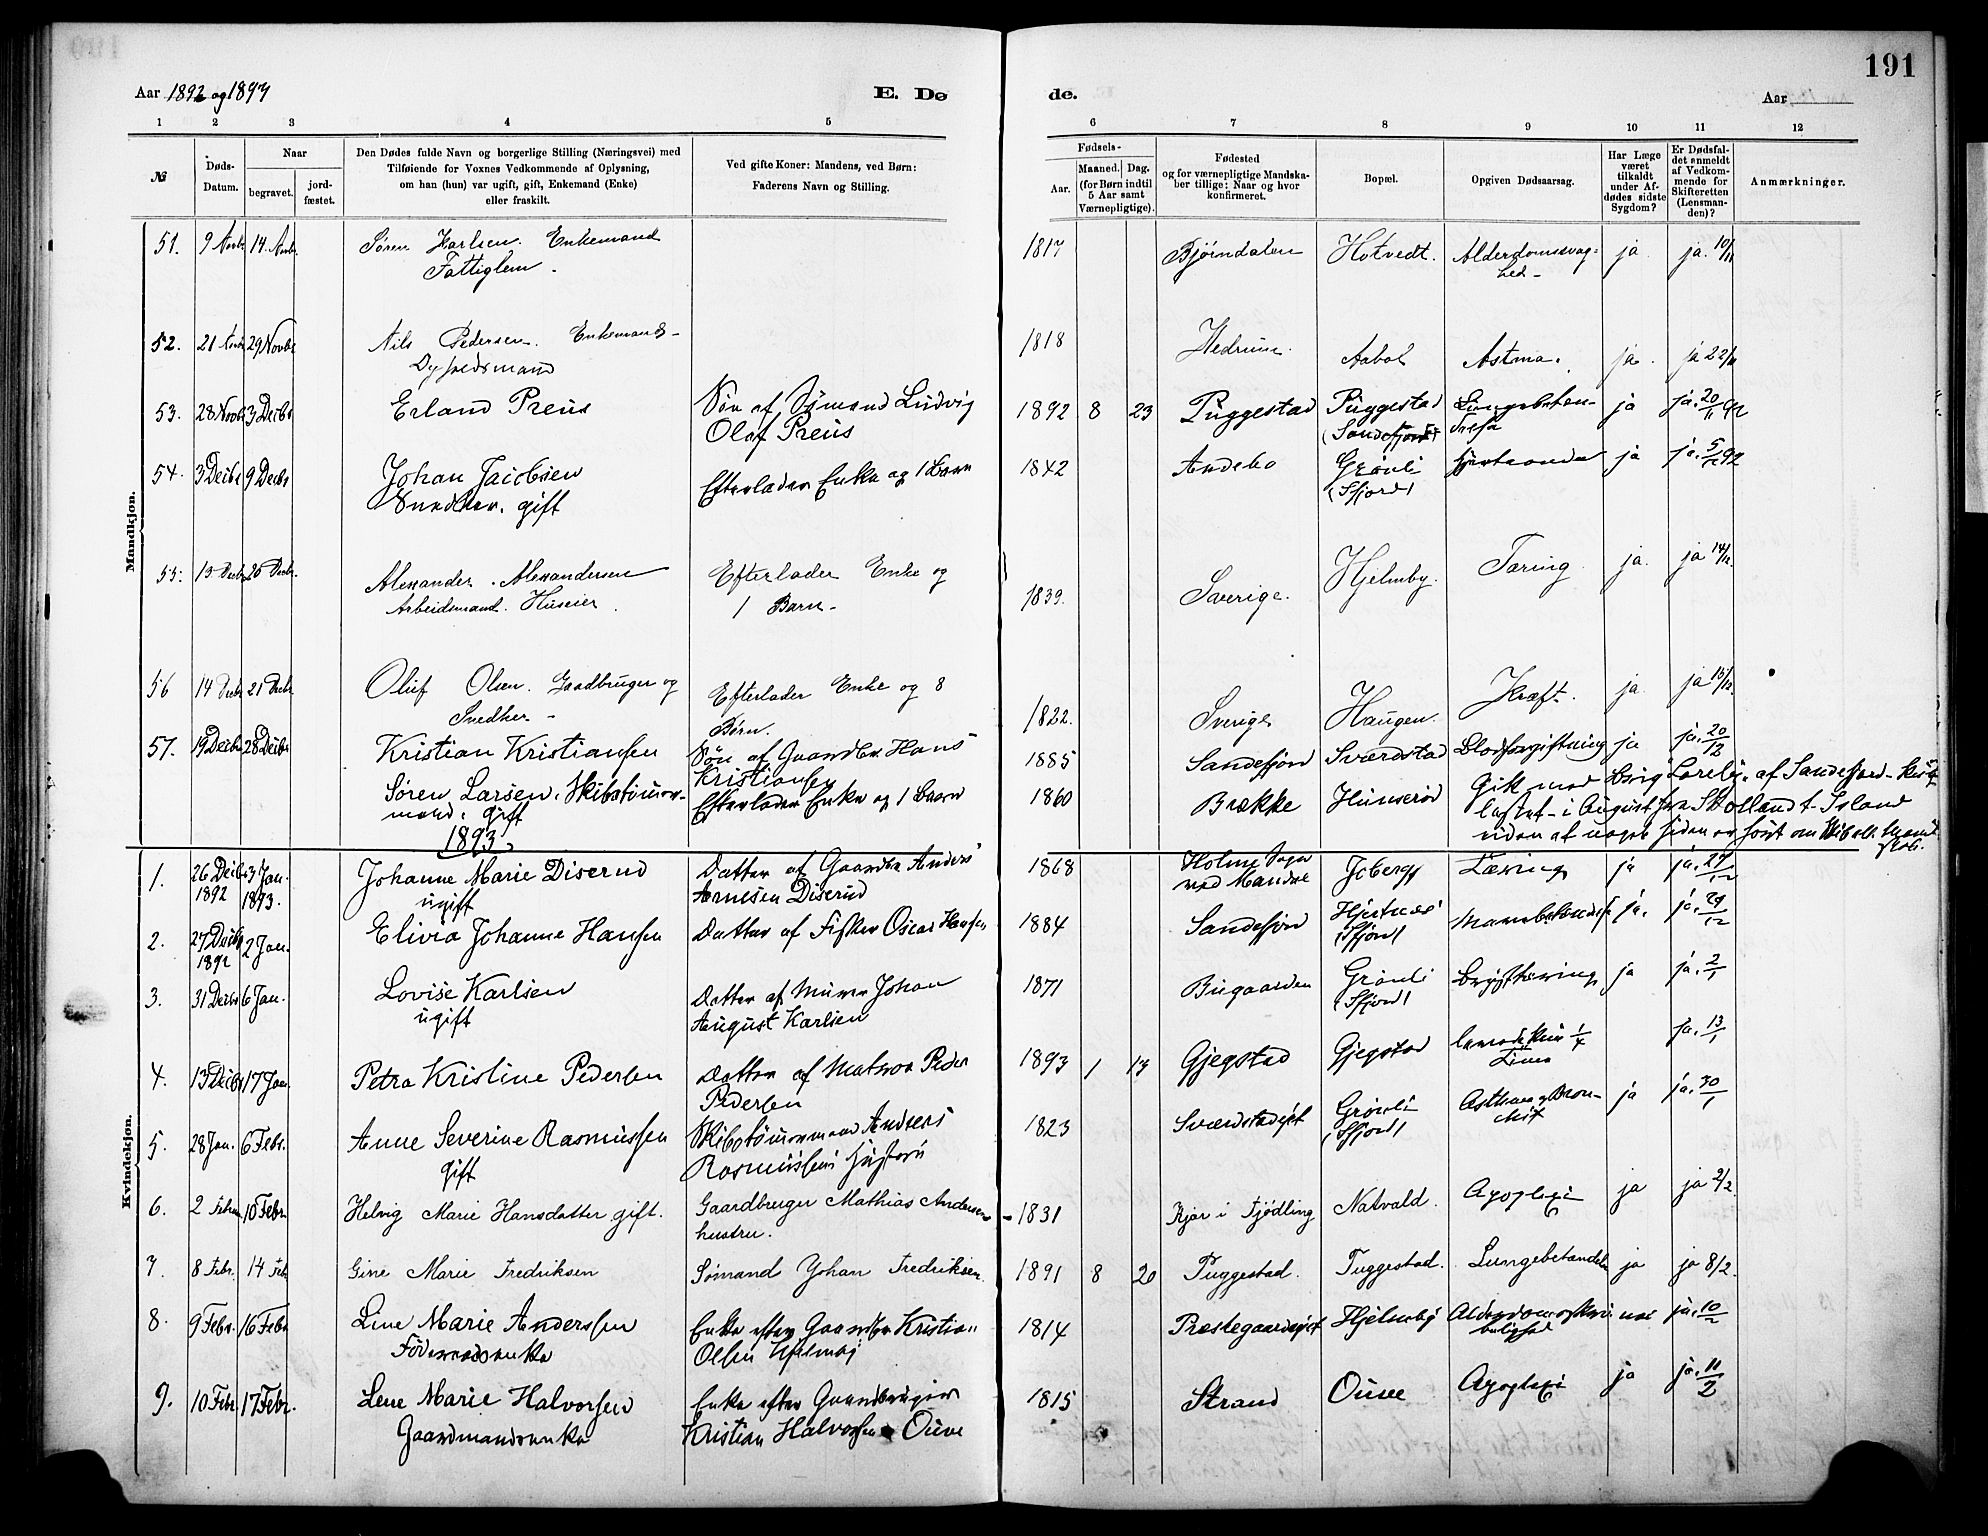 191
Aar 1892 og 1893
E. Dø
de.
Aar
1 2 3 4 5
6 7 8 9 10 11 12
№
Døds-Datum.
Naar
begravet.
jord-fæstet.
Den Dødes fulde Navn og borgerlige Stilling (Næringsvei) med
Tilføiende for Voxnes Vedkommende af Oplysning,
om han (hun) var ugift, gift, Enkemand (Enke)
eller fraskilt.
Ved gifte Koner: Mandens, ved Børn:
Faderens Navn og Stilling.
Fødsels-
Aar.
Maaned. Dag.
(for Børn indtil
5 Aar samt
Værnepligtige).
Fødested
og for værnepligtige Mandska-
ber tillige: Naar og hvor
konfirmeret.
Bopæl.
Opgiven Dødsaarsag.
Har Læge
været
tilkaldt
under Af-
dødes sidste
Sygdom?
Er Dødsfal-
det anmeldt
af Vedkom-
mende for
Skifteretten
(Lensman-
den)?
Anmærkninger.
Mandkjøn.
51. 9 Novbr 14. Novbr Søren Karlsen. Enkemand 1817 Bjørndalen Hotvedt. Alderdomssvag= ja ja. 10/11
Fattiglem. hed-
52. 21 Novbr 29 Novbr Nils Pedersen. Enkemand- 1818 Hedrum. Aabol Astma. ja. ja 22/11
53. 28 Novbr 3 Decbr Erland Preus Søn af Sømand Ludvig 1892 8 23 Puggestad Puggestad Lungebeten- ja ja. 20/11 92
Olaf Preus (Sandefjord) delse
54. 3 Decbr 9 Decbr Johan Jacobsen Efterlader Enke og 1 Barn 1842 Andebo Grønli ja ja. 5/12 92
Snedker. gift (Sfjord)
55. 13 Decbr 20 Decbr. Alexander. Alexandersen Efterlader Enke og 1839. Sverige. Hjelmby. Tæring ja. ja 14/12
Arbeidsmand. Huseier. 1 Barn-
56 14 Decbr 21 Decbr Oluf Olsen. Gaardbruger og Efterlader Enke og 8 1822. Sverige Haugen. Kræft. ja. ja 15/12.
Snedker- Børn.
57. 19 Decbr 28 Decbr Kristian Kristiansen Søn af Gaardbr. Hans 1885 Sandefjord Sværdstad Blodforgiftning ja ja. 20/12
Kristiansen
Søren Larsen. Skibstømmer- Efterlader Enke og 1 Barn 1860 Brække Hunserød Gik med Brig "Loreley" af Sandefjord-
mand. gift lastet- i August fra Island
siden af noget siden er hørt om Skib ell. Mand-
skab.
1893.
Kvindekjøn.
1. 26 Decbr 1892 3 Jan. 1893. Johanne Marie Diserud Datter af Gaardbr. Anders 1868 Holme Sogn Joberg Tæring ja ja. 27/12
ugift Arnesen Diserud ved Mandal
2. 27 Decbr 1892 2 Jan. Elivia Johanne Hansen Datter af Fisker Oscar Hansen 1884 Sandefjord Hjertnæs ja. ja. 29/12
(Sfjord)
3. 31 Decbr 6 Jan. Lovise Karlsen Datter af Murer Johan 1871 Bugaarden Grønli Brysttæring ja ja. 2/1
ugift August Karlsen (Sfjord)
4. 13 Decbr 17 Jan. Petra Kristine Pedersen Datter af Matros Peder 1893 1 13 Gjegstad Gjegstad levede kun 1/4 ja. 13/1
Pedersen Time
5. 28 Jan. 6 Febr. Anne Severine Rasmussen Skibstømmermand Anders 1823 Sværdstadeiet Grønli Asthma og Bron- ja ja. 30/1
gift Rasmussens Hustru (Sfjord) chit
6. 2 Febr. 10 Febr. Helvig Marie Hansdatter gift. Gaardbruger Mathias Andersens 1831 Kjær i Tjødling Natvald. Apoplexi ja ja 2/2
hustru.
7. 8 Febr. 14 Feb Gine Marie Fredriksen Sømand Johan Fredriksen. 1891 8 20 Puggestad. Puggestad. Lungebetændelse ja ja 8/2.
8. 9 Febr. 16 Febr Line Marie Anderssen Enke efter Gaardbr. Kristian 1814 Præstegaardseiet Hjelmbÿ nei ja. 10/2
Føderaadsenke Olsen Hjelmbÿ
9. 10 Febr 17 Febr. Lene Marie Halvorsen Enke efter Gaardbruger 1815 Strand Ouve Apoplexi ja ja. 11/2
Gaardmandsenke Kristian Halvorsen Ouve